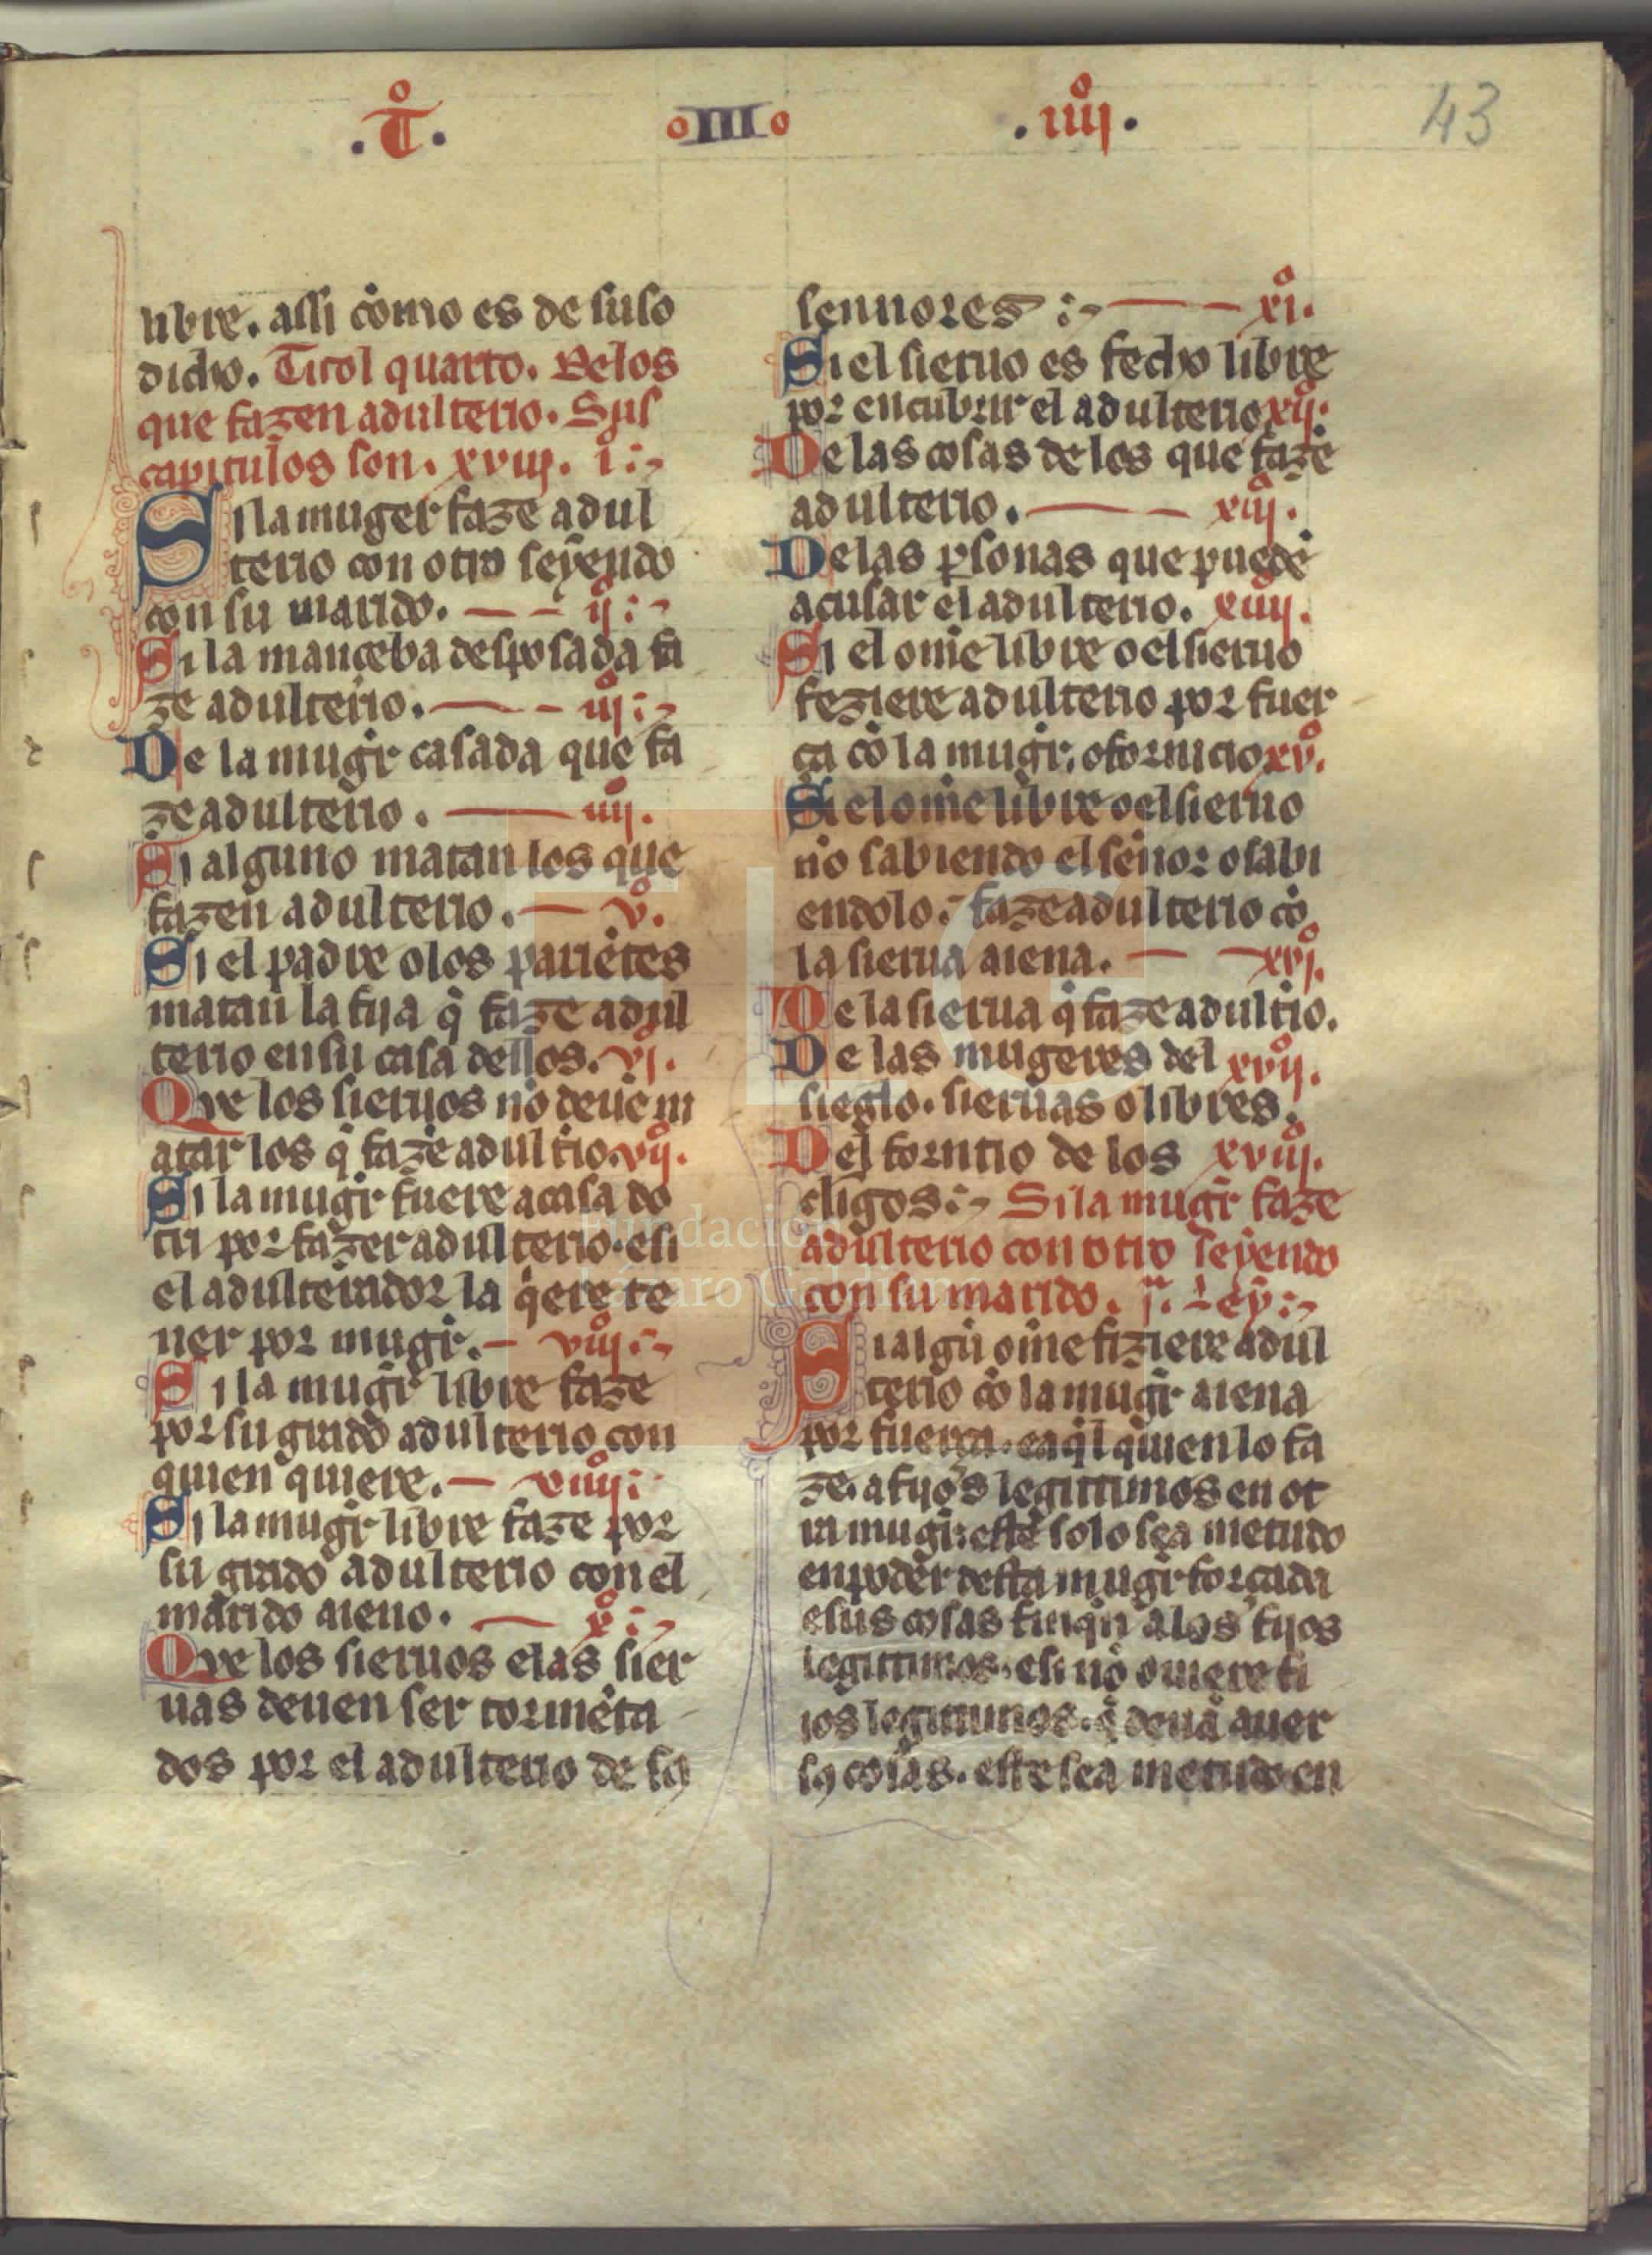 .T̊.
III
.iiii̊.
43
libre. assi como es de suso
dicho. Titol quarto. Delos
que fazen adulterio. Sus
capitulos son. xviii. i.
Si la muger faze adul
terio con otro seyendo
con su marido. ii.
Si la manceba desposada fa
ze adulterio. iii.
De la mug̃r casada que fa
ze adulterio. iiii.
Si alguno matan los que
fazen adulterio. v̊.
Si el padre o los pariẽtes
matan la fija q̃ faze adul
terio en su casa dellos. vi̊.
Que los sieruos nõ deuẽ m
atar los q̃ fazẽ adult̃io. vii̊.
Si la mug̃r fuere a casa do
tri por fazer adulterio. e si
el adulterador la q̃ere te
ner por mug̃r. viii̊.
Si la mug̃r libre faze
por su grado adulterio con
quien quiere. viiii̊.
Si la mug̃r libre faze por
su grado adulterio con el
marido aieno. x̊.
Que los sieruos e las sier
uas deuen ser tormẽta
dos por el adulterio de sꝯ
sennores xi̊.
Si el sieruo es fecho libre
por encubrir el adulterio xii̊.
De las cosas de los que fazẽ
adulterio. xiii̊.
De las ꝑsonas que puedẽ
acusar el adulterio. xiiii̊.
Si el om̃e libre o el sieruo
feziere adulterio por fuer
ça cõ la mug̃r. o fornicio xv̊.
Si el om̃e libre o el sieruo
nõ sabiendo el sẽnor o sabi
endolo. faze adulterio cõ
la sierua aiena. xvi̊.
De la sierua q̃ faze adult̃io.
De las mugeres del xvii̊.
sieglo. sieruas o libres.
Del fornitio de los xviii̊.
cl̃igos. Si la mug̃r faze
adulterio con otro seyendo
con su marido. i. Ley
Si algũ om̃e fiziere adul
terio cõ la mug̃r aiena
por fuerça. e aq̃l quien lo fa
ze. a fijos legittimos en ot
ra mug̃r. este solo sea metudo
en poder desta mug̃r forçada
e sus cosas finq̃n a los fijos
legittimos. e si nõ ouiere fi
ios legittimos. q̃ deuã auer
sꝯ cosas. este sea metudo en
Fundación
Lázaro Galdiano